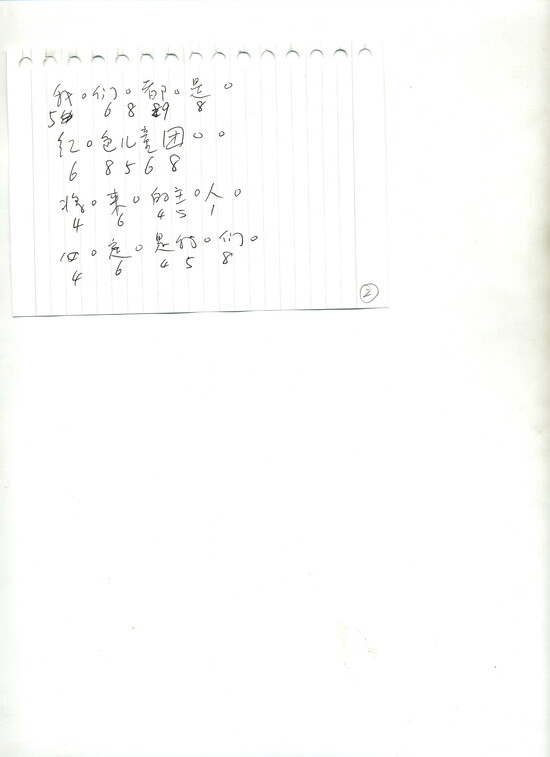 我。们。都。是。
5 6 8 9 8
红。色儿童团。。
6 8 5 6 8
将。来。的主。人。
4 6 4 5 1
必。定。是我。们。
4 6 4 5 8
②